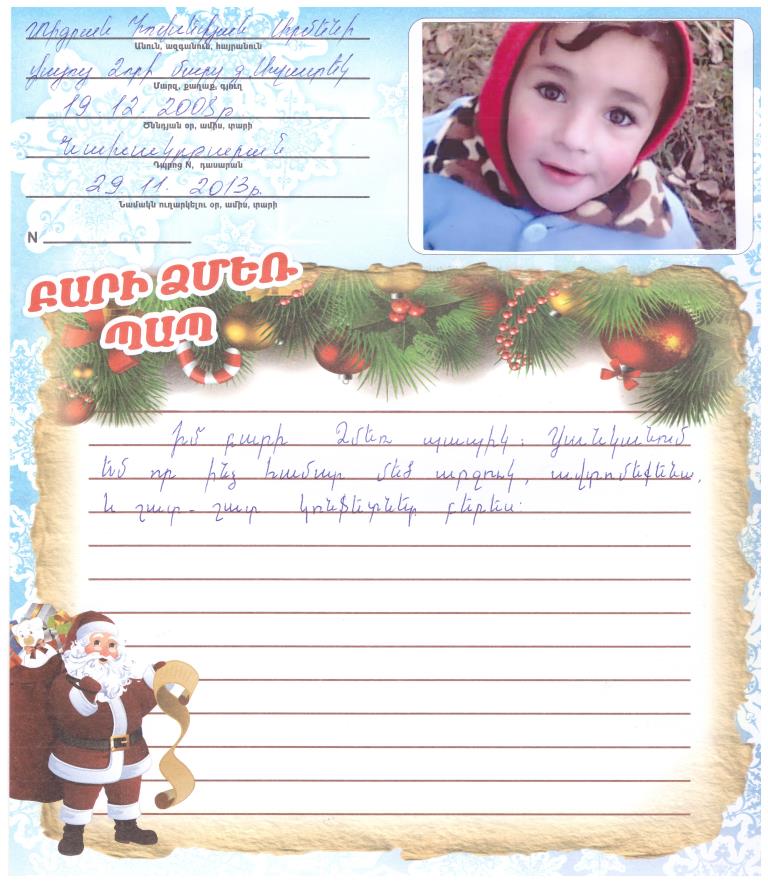 Տիգրան Հովհանիսյան Արմենի
Անուն, ազգանուն, հայրանուն
Վայոց Ձորի մարզ գ.
Մարզ, քաղաք, գյուղ
19.12.2003թ
Ծննդյան օր, ամիս, տարի
Նախակրթարան
Դպրոց N, դասարան
29.11.2013թ.
Նամակն ուղարկելու օր, ամիս, տարի
N
ԲԱՐԻ ՁՄԵՌ
ՊԱՊ
Իմ բարի Ձմեռ պապիկ: Ցանկանում
եմ որ ինձ համար մեծ արջուկ, ավտոմեքենա,
և շատ-շատ կոնֆետներ բերես: